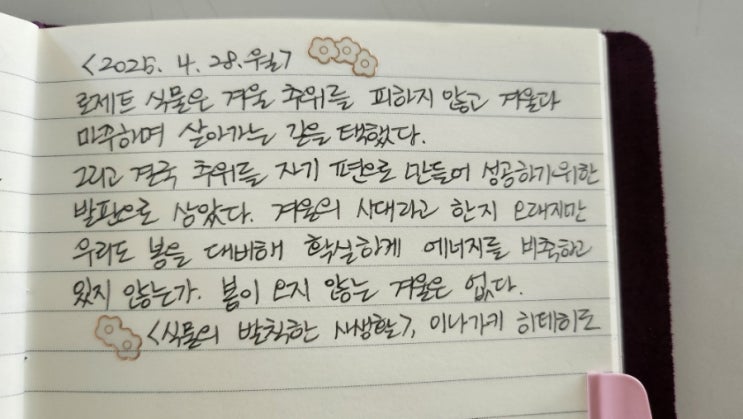 <2025. 4. 28. 월>
로제트 식물은 겨울 추위를 피하지 않고 겨울과
마주하며 살아가는 길을 택했다.
그리고 결국 추위를 자기 편으로 만들어 성공하기 위한
발판으로 삼았다. 겨울의 시대라고 한지 오래지만
우리도 봄을 대비해 확실하게 에너지를 비축하고
있지 않는가. 봄이 오지 않는 겨울은 없다.
<식물의 발칙한 사생활>, 이나가키 히데히로